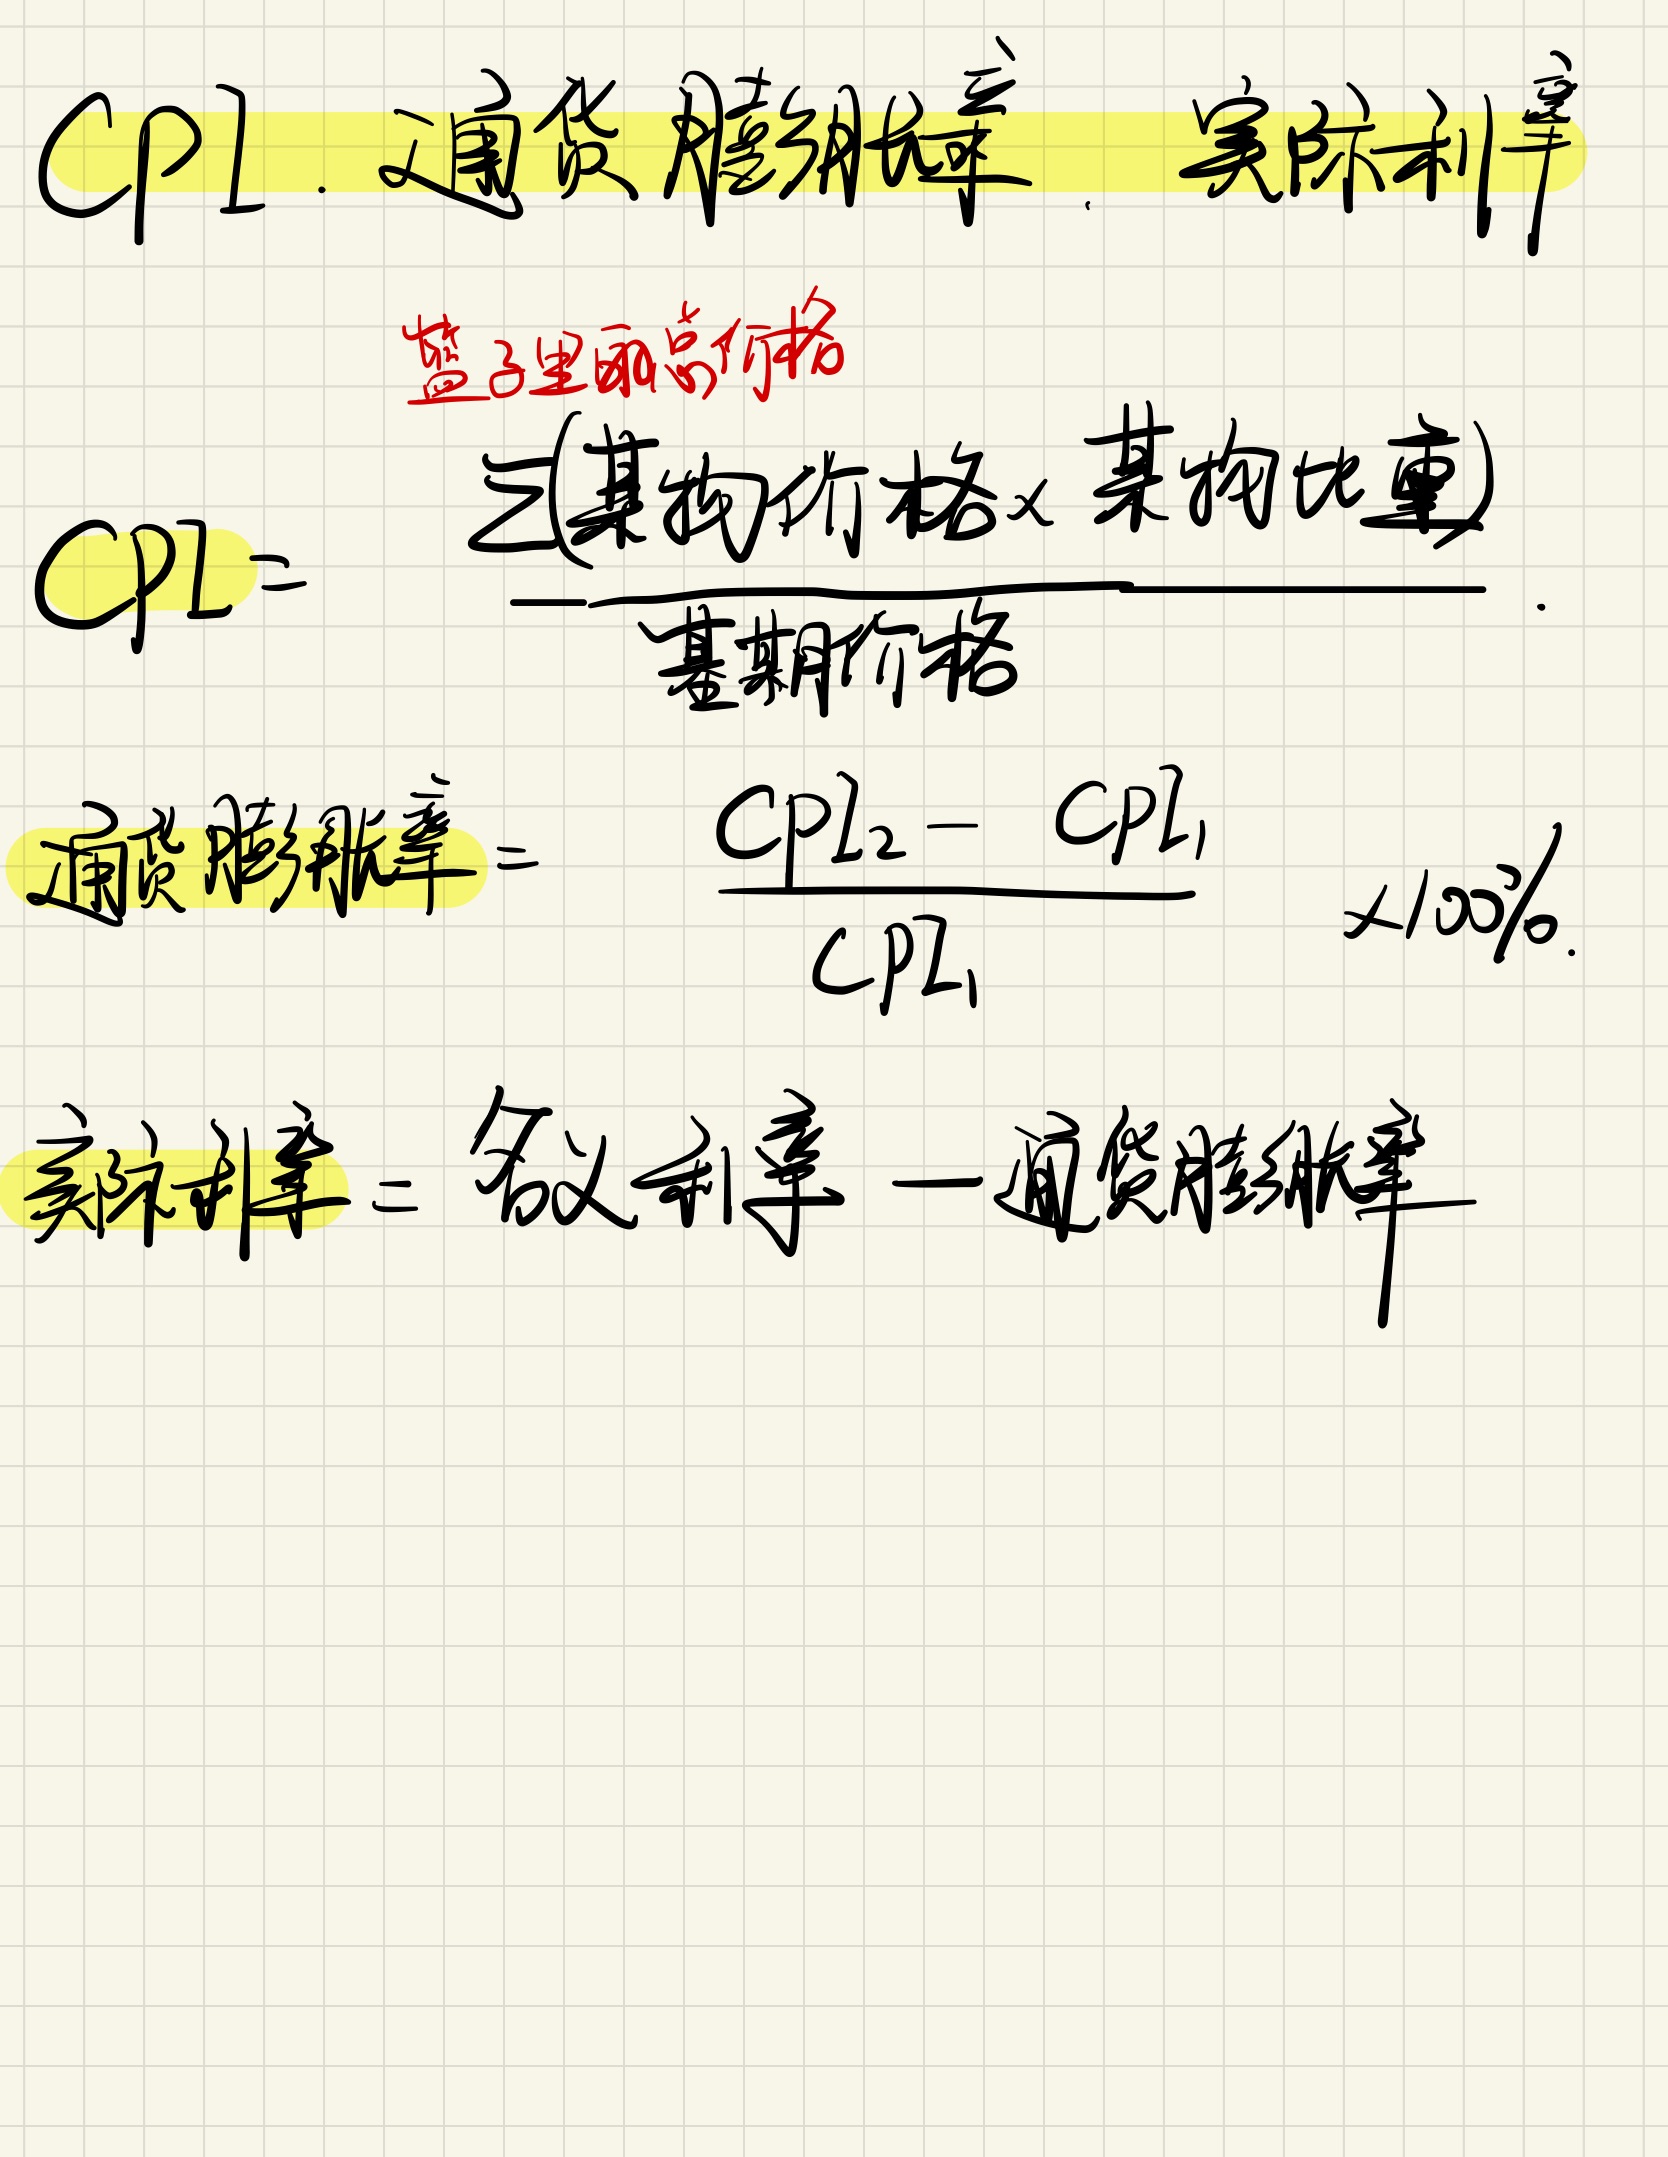 CPI. 通货膨胀率. 实际利率
篮子里面总价格
CPI = Σ(某物价格 × 某物比重)
基期价格
通货膨胀率 = CPI₂ — CPI₁ ×100%.
CPI₁
实际利率 = 名义利率 — 通货膨胀率